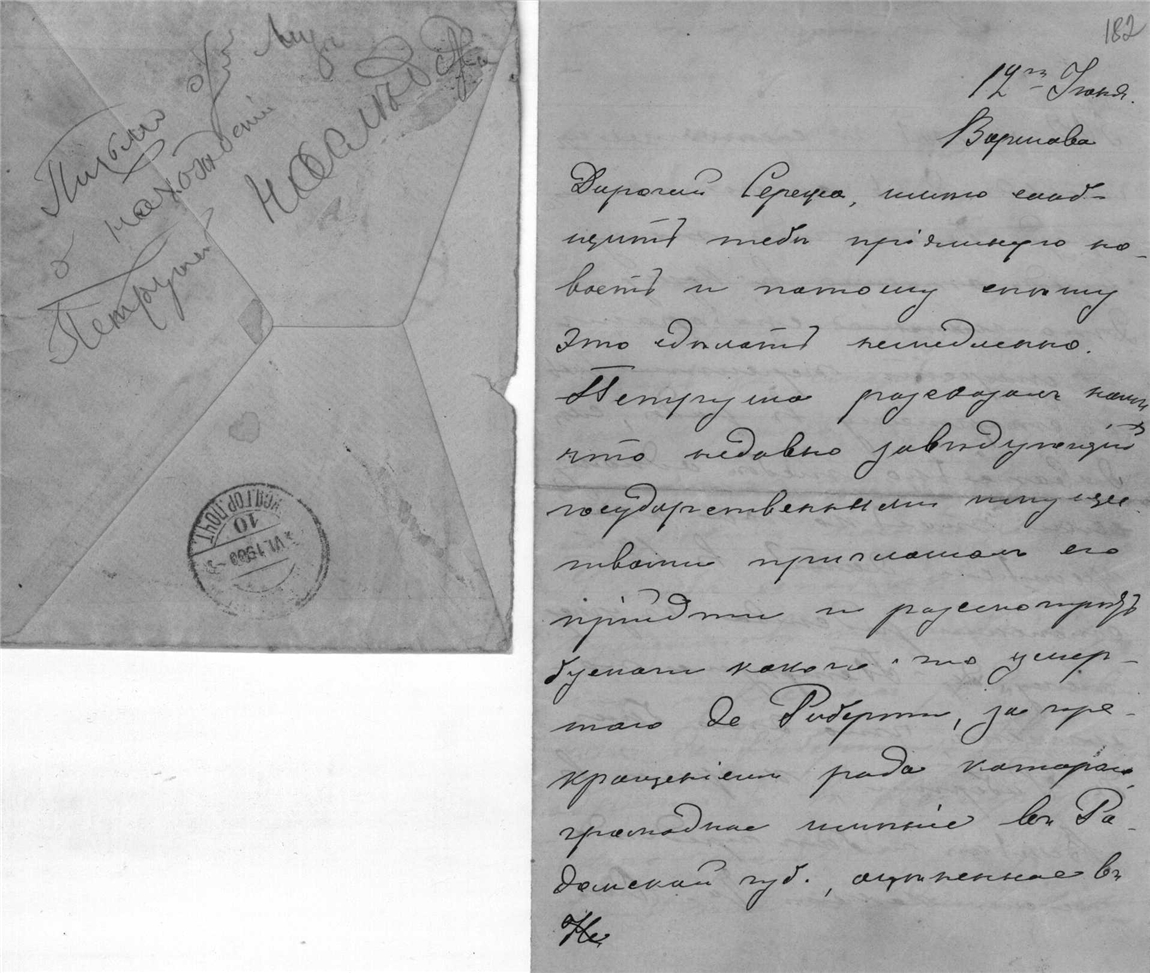 Письмо
о нахождении
Петруши
наслѣдства
ГОР.ПОЧТ.
10
VI.1900
182
12го Іюня.
Варшава
Дорогой Сережа, спѣшу сооб-
щить тебѣ пріятную но-
вость и потому спѣшу
это сдѣлать немедленно.
Петруша разсказалъ намъ
что недавно завѣдующій
государственными имуще-
ствами приглашалъ его
прійдти и разсмотрѣть
бумаги какого-то умер-
шаго де Роберти, за пре-
кращеніемъ рода котораго
громадное имѣніе въ Ра-
домской губ., оцѣненное въ